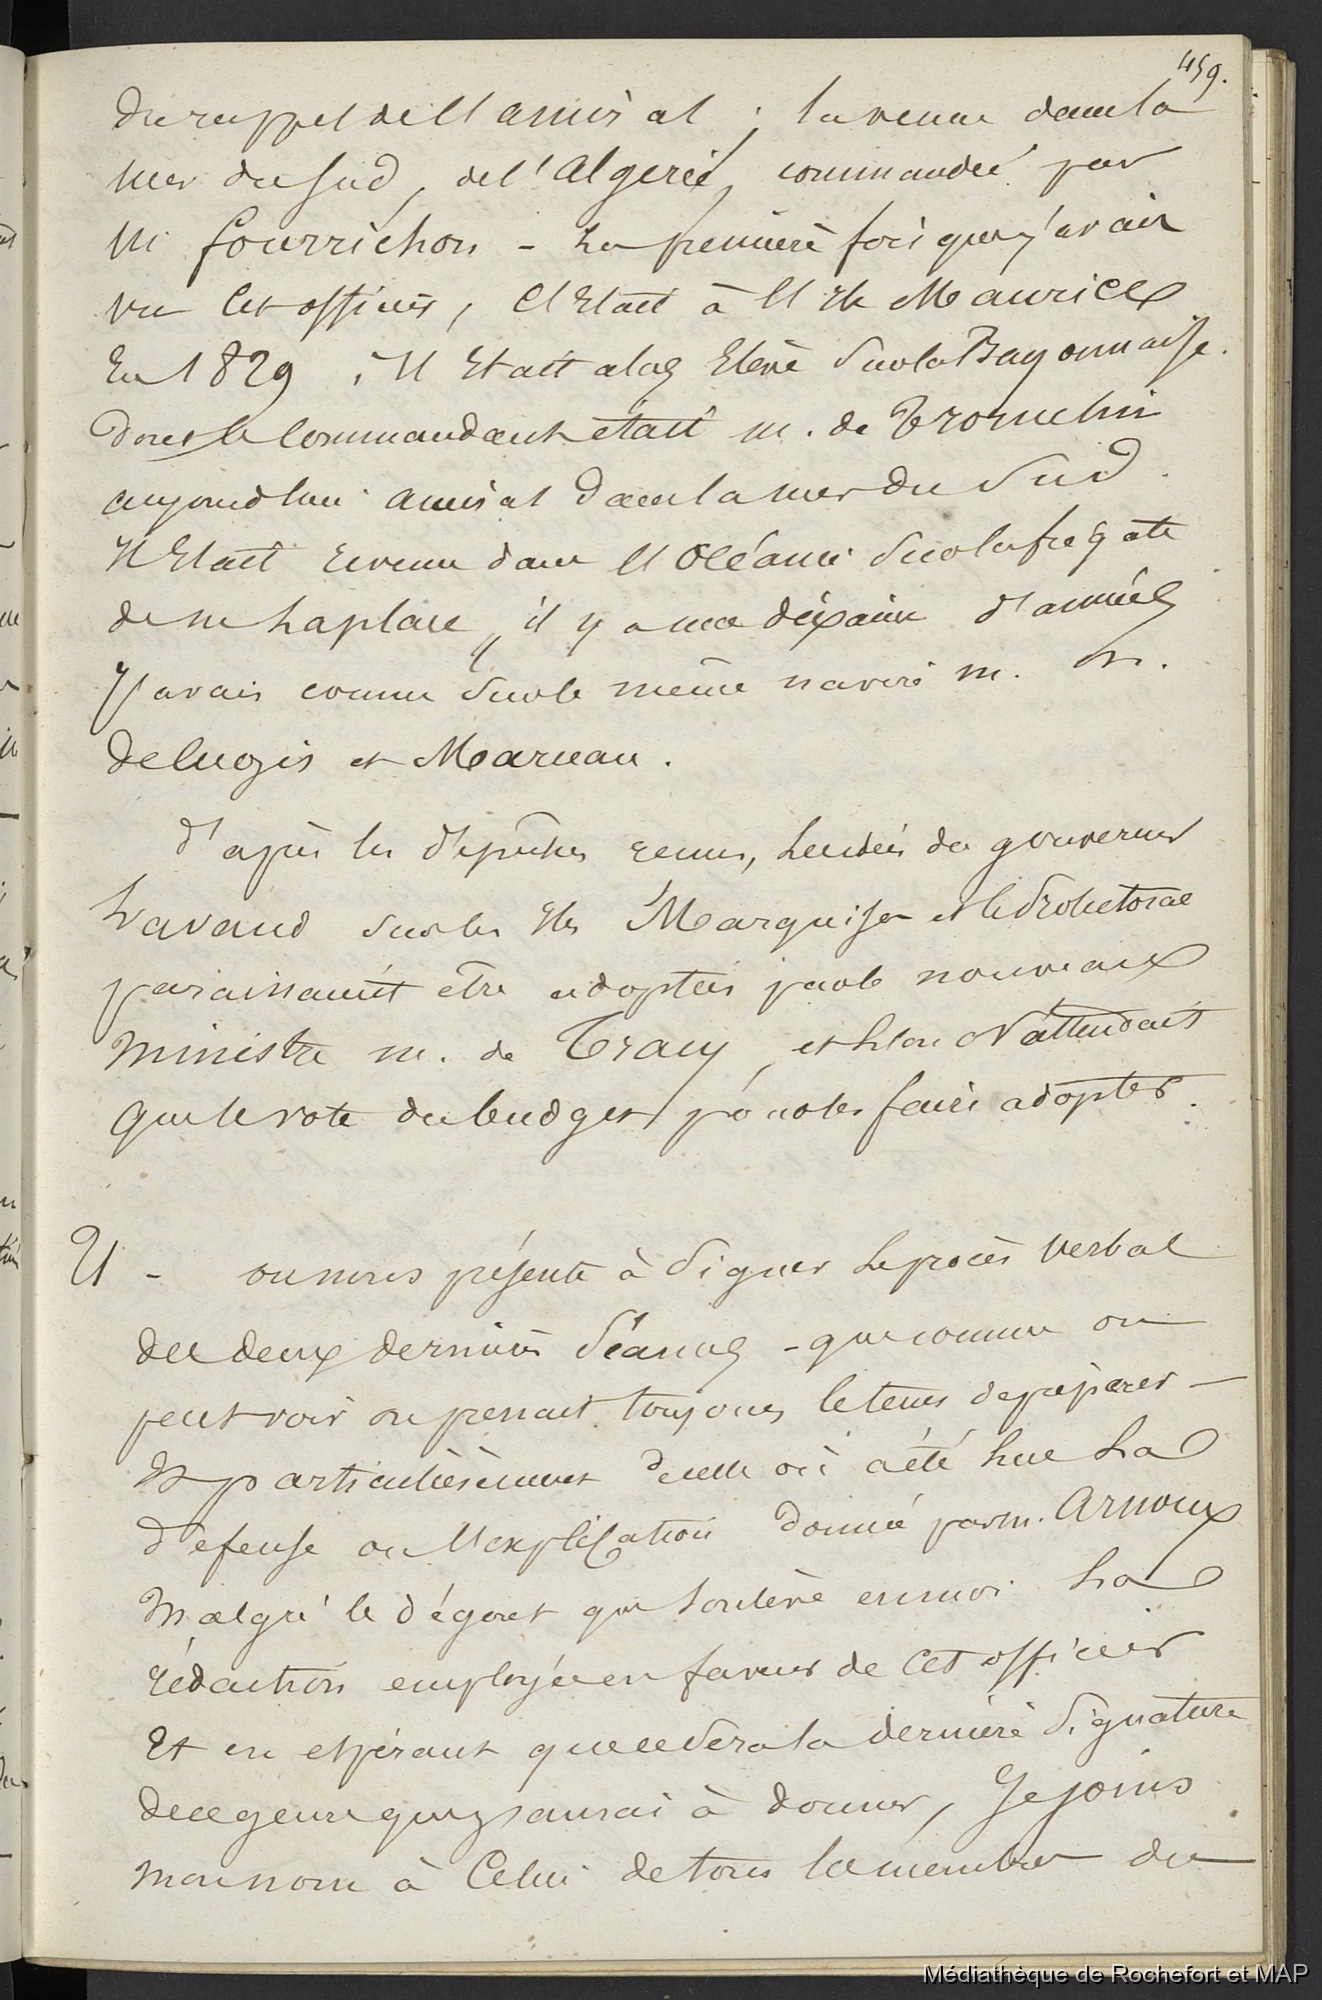 459.
du rappel de l'amiral ; la venue dans la
mer du sud, de l'algerie, commandée par
M fourrichon - La première fois que j'avais
vu Cet officier, C'Etait à l'Ile Maurice
En 1829 , Il Etait alors Elève sur la Bayonnaise.
dont le Commandant était m. de Tromelin
aujourd'hui amiral dans la mer du Sud.
Il Etait revenu dans l'Océanie sur la frégate
de m Laplace, il y a une dixaine d'années
J'avais connu sur le même navire m. m.
de lugzis et Marceau.
d'après les dépêches reçues, les idées du gouverneur
Lavaud sur les Iles Marquises et le Protectorat
paraissaient être adoptées par le nouveau
ministre m. de Tracy, et l'on N'attendait
que le vote du budget pour les faire adopter.
21 - on nous présente à signer le procès verbal
des deux dernières séances - que comme on
peut voir on prenait toujours le tems de préparer -
Et particulièrement de celle où a été lue La
défense ou l'explication donnée par m. Arnoux
Malgré le dégout que soulève en moi La
rédaction employée en faveur de Cet officier
Et en espérant que ce sera la dernière signature
de ce genre que j'aurai à donner, Je joins
mon nom à Celui de tous les membres du
Médiathèque de Rochefort et MAP